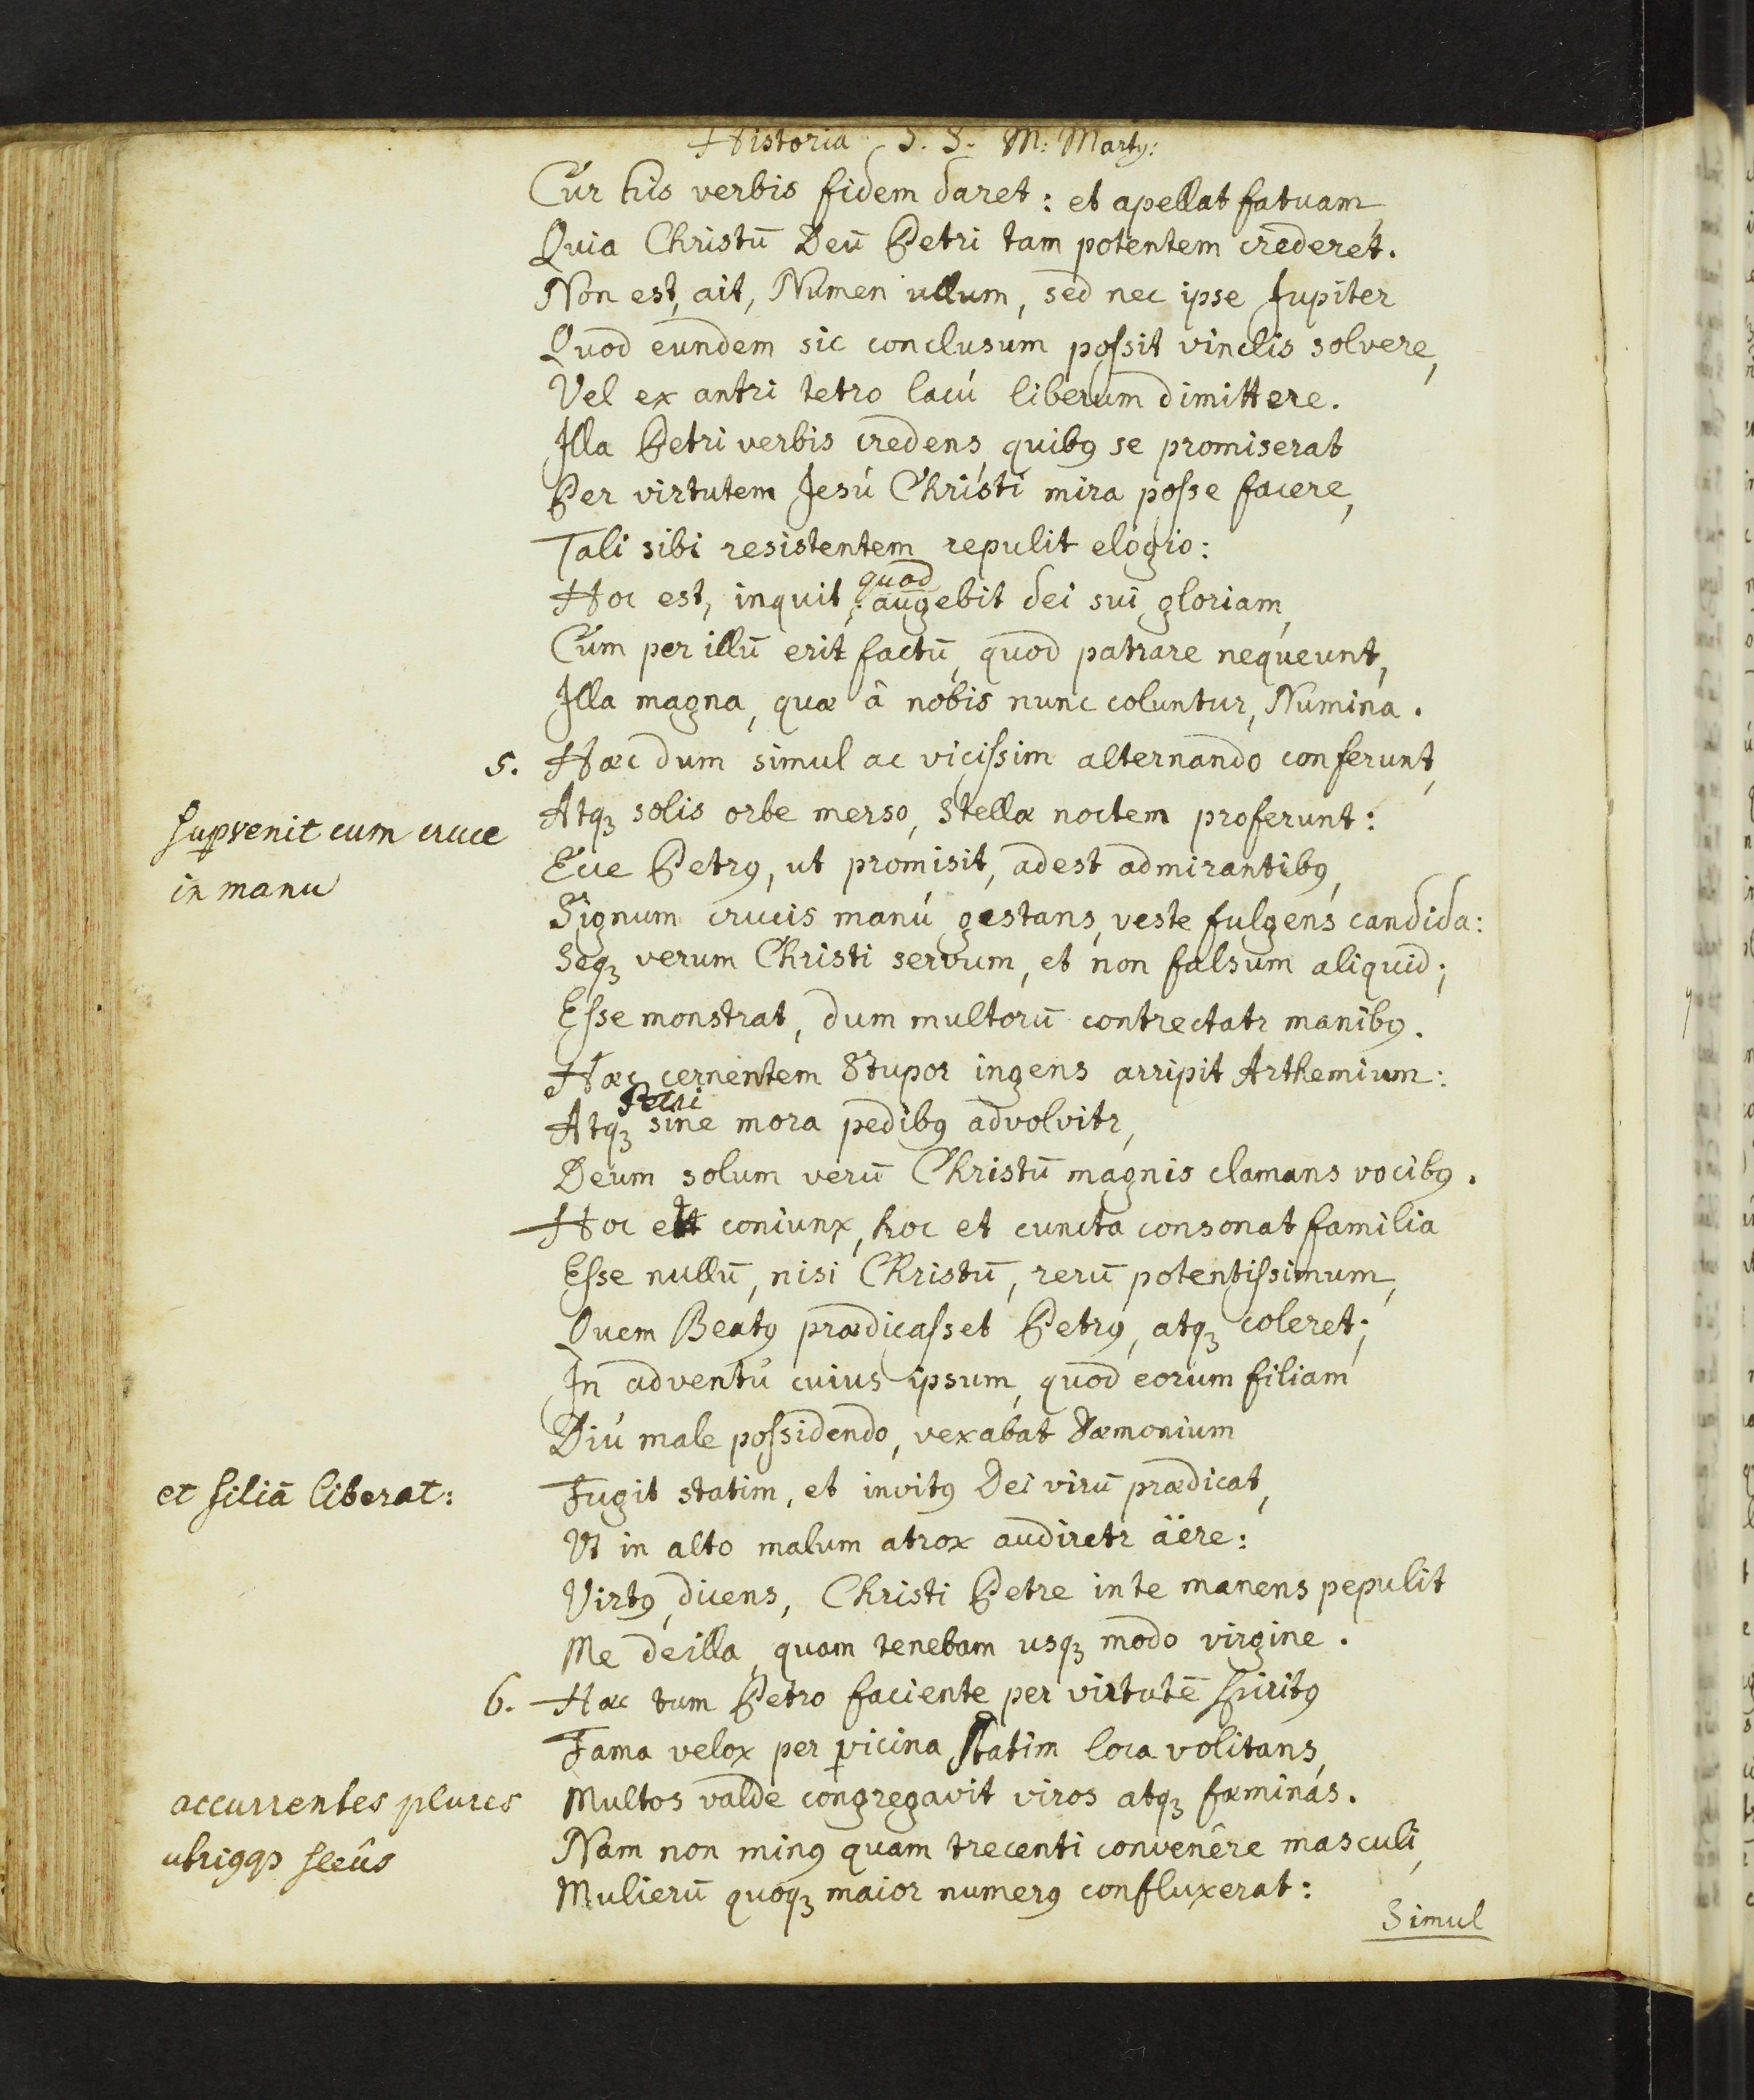 Historia S. S. M: Marty:
Cúr his verbis fidem daret: et apellat fatuam,
Quia Christū Deū Petri tam potentem crederet.
Non est, ait, Númen ullum, sed nec ipse Jupiter
Quod eundem sic conclusum poſsit vinclis solvere,
Vel ex antri tetro lacú liberum dimittere.
Illa Petri verbis credens, quibꝰ se promiserat
Per virtutem Jesú Christi mira poſse facere,
Tali sibi resistentem repulit elogio:
quod
Hoc est, inquit, augebit dei sui gloriam,
Cúm per illū erit factū, quod patrare nequeunt,
Illa magna, quæ â nobis nunc coluntur, Numina.
5. Hæc dum simul ac viciſsim alternando conferunt,
Atqꝫ solis orbe merso, Stellæ noctem proferunt:
Suꝑvenit cum cruce
in manu
Ecce Petrꝰ, ut promisit, adest admirantibꝰ,
Signum crucis manú gestans, veste fulgens candida:
Seqꝫ verum Christi servum, et non falsum aliquid;
Eſse monstrat, dum multorū contrectatr manibꝰ.
Hæc cernentem Stupor ingens arripit Arthemium:
Petri
Atqꝫ sine mora pedibꝰ advolvitr,
Deum solum verū Christū magnis clamans vocibꝰ.
Hoc et coniunx, hoc et cuncta consonat familia
Eſse nullū, nisi Christū, rerū potentiſsimum,
Quem Beatꝰ prædicaſset Petrꝰ, atqꝫ coleret;
In adventú cuius ipsum, quod eorum filiam
Diú male poſsidendo, vexabat Dæmonium
et filiā liberat:
Fugit statim, et invitꝰ Dei virū prædicat,
Ut in alto malum atrox audiretr äere:
Virtꝰ, dicens, Christi Petre in te manens pepulit
Me de illa, quam tenebam usqꝫ modo virgine.
6. Hæc tum Petro faciente per virtutē Spiritꝰ
Fama velox per ꝑvicina Statim loca volitans,
accurrentes plures
utriqqꝫ sexûs
Multos valde congregavit viros atqꝫ fæminas.
Nam non minꝰ quam trecenti convenêre masculi,
Mulierū quoqꝫ maior numerꝰ confluxerat:
Simul